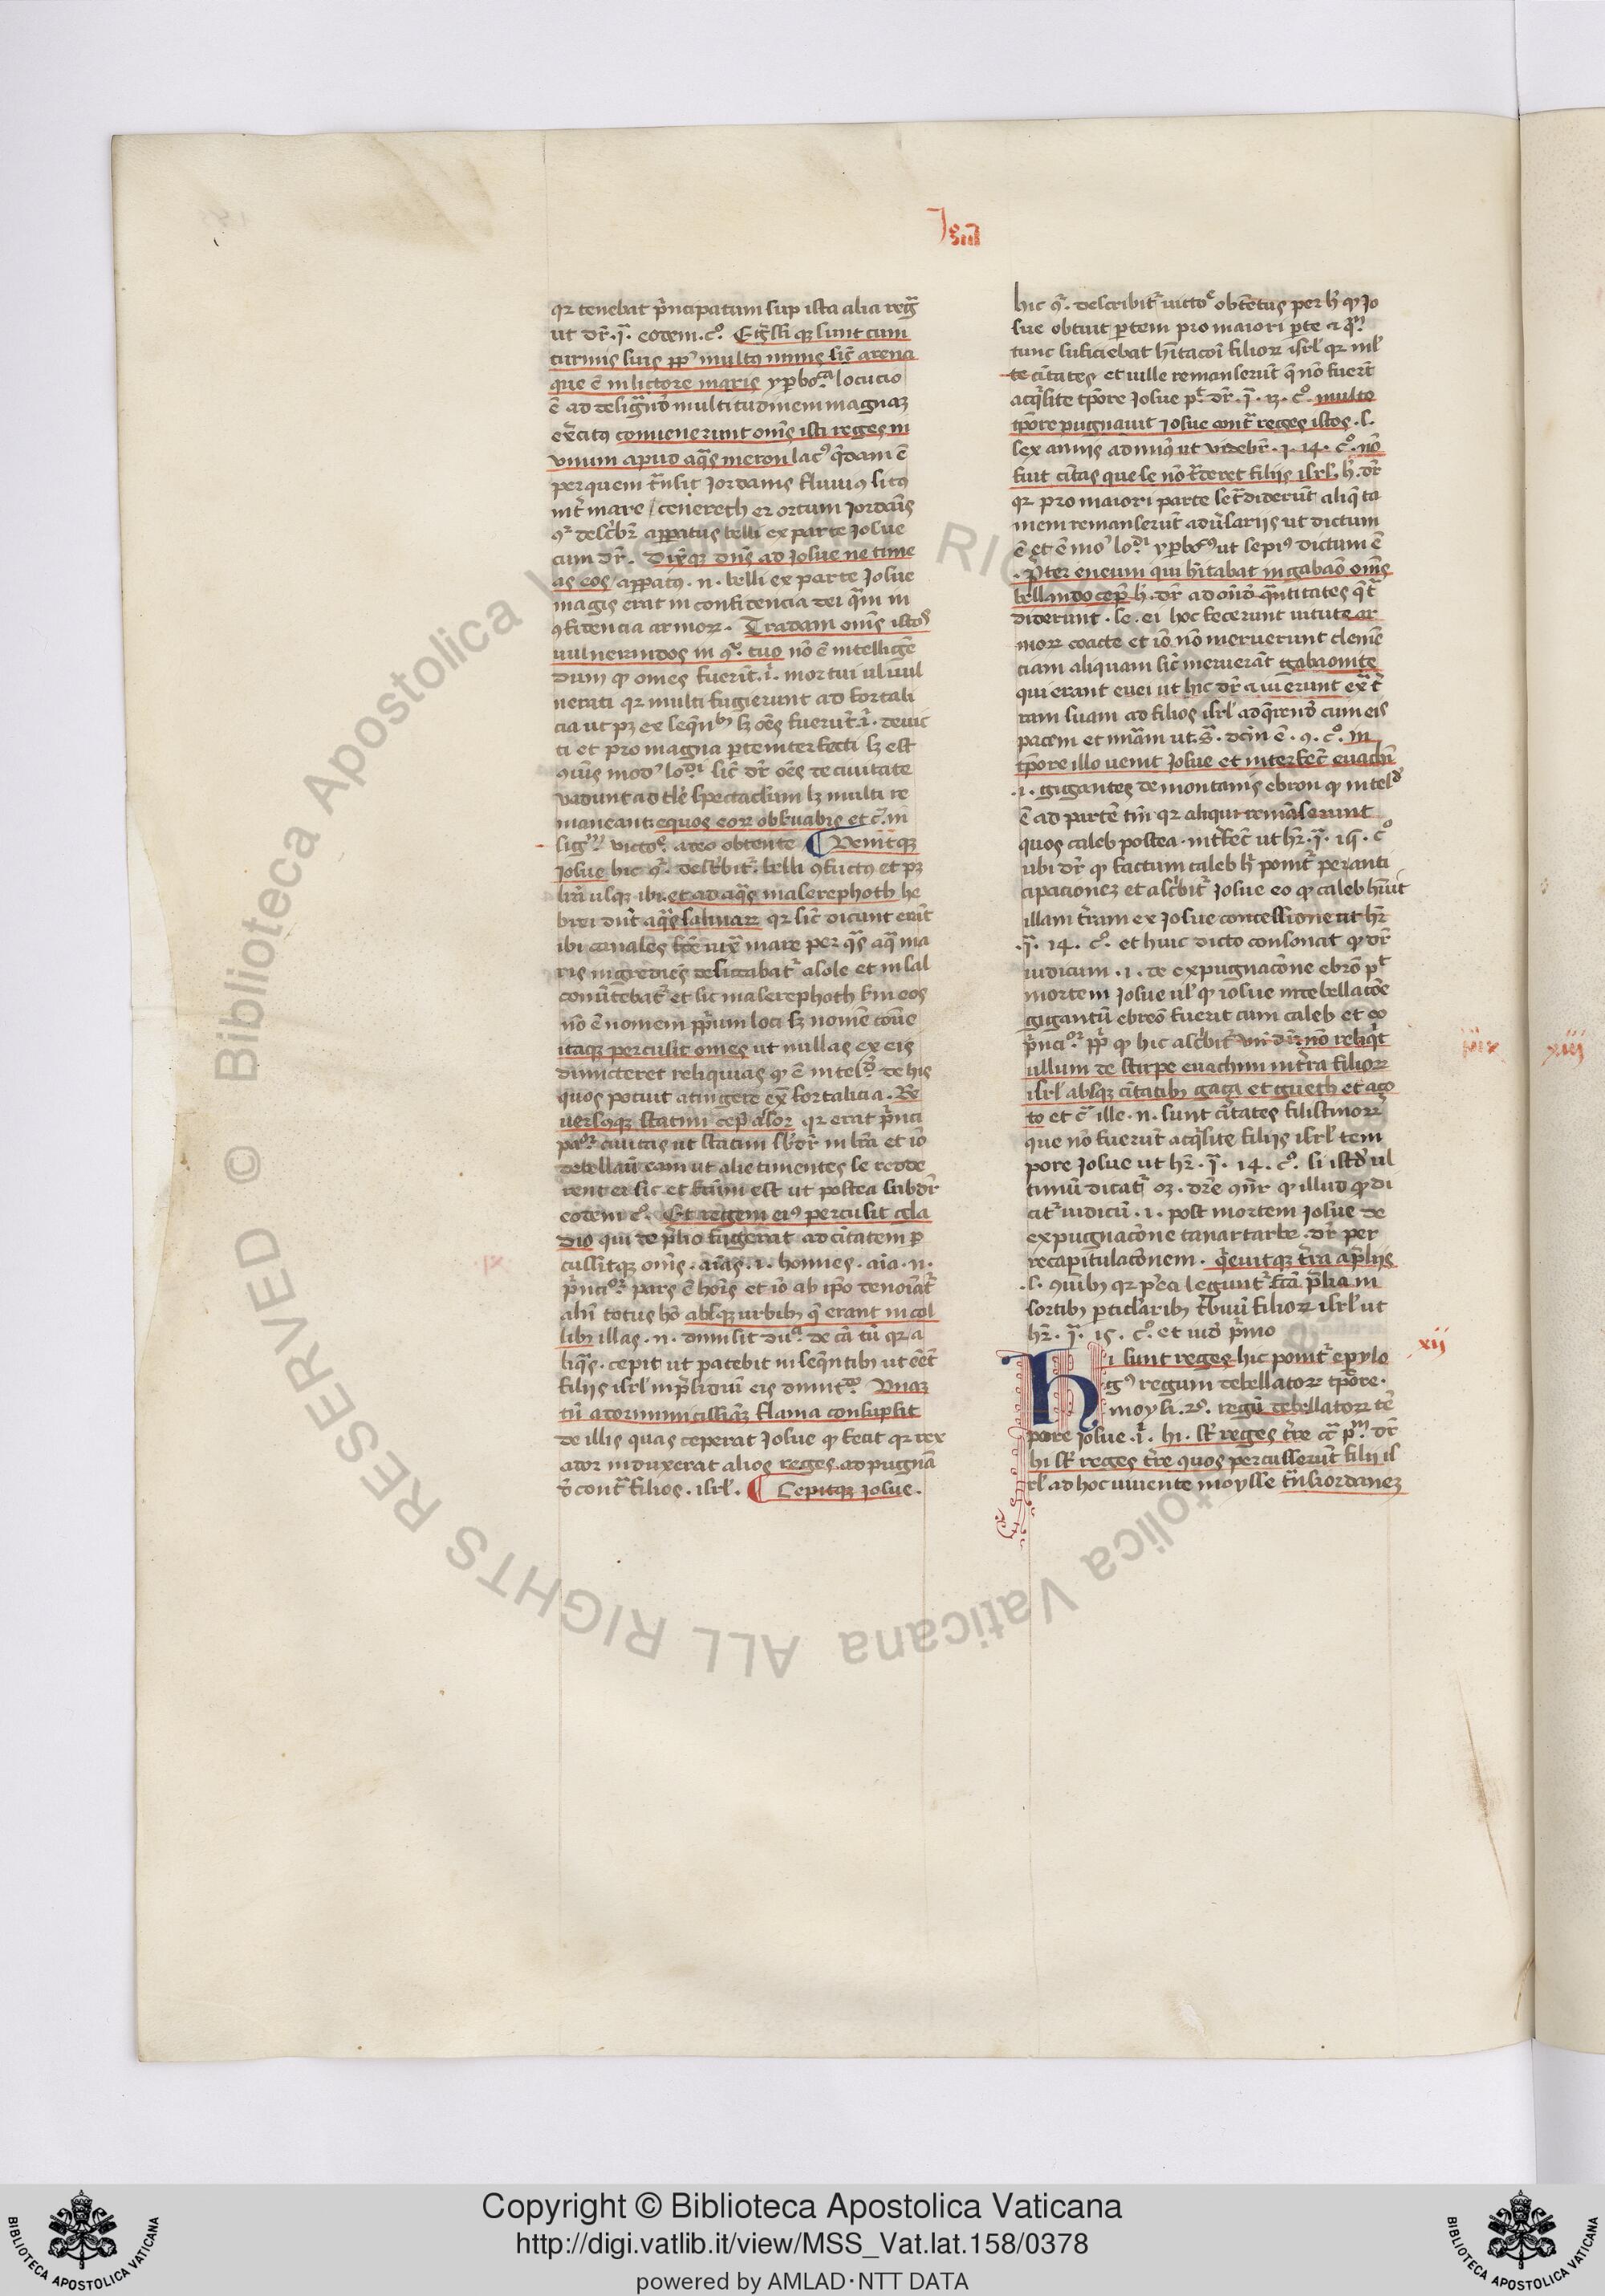 Josue
qr tenebat p̄ncipatum sup ista alia reg̃
ut dr̄ .j̄. eodem .c°. Eg̃ssiq; sunt cum
turmis suis pp̄ls multus nimis sic̄ arena
que ē in lictore maris yp̄bo.ca locucio
ē ad desig̃nd̄ multitudinem magnaz
exc̄itus convenerunt om̄s isti reges in
vnum apud aq̄s meron lac9 q̄dam ē
per quem t̄nsit Jordanis fluvius situs
int̄ mare / cenereth et ortum Jordanis
9r desc̄bit̄ apparatus belli ex parte Josue
cum dr̄ . Dixitq; dn̄s ad Josue ne time
as eos apparatus .n. belli ex parte Josue
magis erat in confidencia dei q̄m in
9fidencia armor̄ . Tradam om̄s istos
vulnerandos in 9s. tuo nō ē intelligen
dum q omēs fuerīt .i. mortui ul vul
nerati qr multi fugierunt ad fortali
cia ut p; ex seq̄ntib; s; oēs fuerūt .i. devic
ti et pro magna parte interfecti s; est
9u̅is mod9 lo.di sic̄ dr̄ oēs de civitate
vadunt ad tle spectaclum s; multi re
maneant equos eorr̄ obsruabis et c̄. in
sig.m victo.e adeo obtente Venitq;
Josue hic 9s. desc̄bit̄. belli 9flictus et p;
lr̄a usq; ibi . et ad aq̄s maserephoth he
brei dn̄t aq̄s salinar̄ qr sic̄ dicunt erāt
ibi canales fc̄e iux̄ mare per q̄s aq̄ ma
ris ingrediēs desiccabat̄ a sole et in sal
conu̅tebat̄ et sic maserephoth s̄m eos
nō ē nomen pp̄rium loci s; nomē cōue
itaq; percusit omēs ut nullas ex eis
dimicteret reliquias q ē intel.m de his
quos potuit atingere ex̄ fortalicia . Re
versusq; statim cep̄ asor qr erat p̄nci
pa.or civitas ut statim sb̄dr̄ in lr̄a et iō
debellau̅ eam ut alie timentes se redde
rent et sic et factum est ut postea subdr̄
eodem c°. Et regem ei9 percusit gla
dio qui de p̄lio fugerat ad civitatem p
cussitq; om̄s . aīas .i. homies . aīa .n.
p̄nci.or pars ē hoīs et iō ab ip̄o denoīat̄
alīn totus hō absq; urbib; q̄ erant in col
lib; illas .n. dimisit du.a de cā tū qr a
liq̄s . cepit ut patebit in seq̄ntib; ut eēt
filiis isrl̄ in p̄sidiū eis dimit.do Vnaz
tū asor munitissimā flama consupsit
de illis quas ceperat Josue q fecit qr rex
asor induxerat alios reges ad pugnā
d̄ contr̄ filios . isrl̄ . Cepitq; Josue .
hic 9s. describit̄ victo.e obtentus per h̄ q Jo
sue obtīuit partem pro maiori p̄te a q̄m
tunc suficiebat hītacōi filiorr̄ isrl̄ qr mlt̄
te cītates et ville remanserūt q̄ nō fuerīt
acq̄site tp̄ore Josue p.t dr̄ .j̄. 13. c°. multo
tp̄ore pugnauit iosue contr̄ reges istos . s.
sex annis ad min9 ut videbr̄ .j. 14. c°. nō
fuit cītas que se nō tr̄deret filiis isrl̄ . h̄. dr̄
qr pro maiori parte se tr̄diderūt aliq̄ ta
men remanserūt adu̅sariis ut dictum
ē et ē mo9 lo.di yp̄bo9 ut sepi9 dictum ē
. p̄ter eueum qui hītabat in gabaō om̄s
bellando cepit h̄. dr̄ ad om̄o q̄ntitates q̄ t̄
diderunt . se . ei hoc fecerunt virtute ar
morr̄ coacte et iō nō meruerunt clemē
ciam aliquam sic̄ meruerāt gabaonite
qui erant euei ut hic dr̄ a iu̅erunt ex̄ t̄
ram suam ad filios isrl̄ ad q̄rend̄ cum eis
pacem et mīam ut .s̄. dcm̄ ē . 9. c°. in
tp̄ore illo venit Josue et interfec̄ enachi
.i. gigantes de montanis ebron q intel.d
ē ad partē tm̄ qr aliqui remāserunt
quos caleb postea . int̄fec̄ ut hr̄ .j̄. 15. c°
ubi dr̄ q factum caleb h̄ ponit̄ per anti
cipacionez et ascībit̄ Josue eo q caleb hūit
illam t̄ram ex Josue concessione ut hr̄
.j̄. 14. c°. et huic dicto consonat q dr̄
iudicum .i. de expugnacōne ebrō p.t
mortem Josue ul̄ q iosue in debellacōe
gigantū ebreō fuerit cum caleb et eo
p̄nci.or pp̄ q hic ascībit̄ vn̄ dr̄ nō reliq̄t
ullum de stirpe enachim in t̄ra filiorr̄
isrl̄ absq; cītatib; gaça et gueth et aço
to et c̄ ille .n. sunt cītates filistinorr̄
que nō fuerūt acq̄site filiis isrl̄ tem
pore Josue ut hr̄ .j̄. 14. c°. si istd̄ ul
timū dicat̄ o; . dr̄e 9n̄r q illud q di
cit̄ iudicū .i. post mortem Josue de
expugnacōne cariatarbe . dr̄ per
recapitulacōnem . q̄euitq; t̄ra a p̄liis
.s. 9u̅ib; qr p̄ea legunt̄ fc̄a p̄lia in
sortib; p̄ticlarib; t̄buū filiorr̄ isrl̄ ut
hr̄ .j̄. 15. c°. et iud̄ p̄mo
xii
Hi sunt reges hic ponit̄ epylo
g9 regum debellatorr̄ tp̄ore .
moysi . 2°. regū debellatorr̄ tē
pore Josue .i. hi . st̄ reges t̄re cc̄ p.m dr̄
hi st̄ reges t̄re quos percusserūt filii is
rl̄ ad hoc vivente moysse t̄ns iordanez
xiii
Copyright © Biblioteca Apostolica Vaticana
http://digi.vatlib.it/view/MSS_Vat.lat.158/0378
powered by AMLAD·NTT DATA
BIBLIOTECA APOSTOLICA VATICANA
BIBLIOTECA APOSTOLICA VATICANA
© Biblioteca Apostolica Vaticana ALL RIGHTS RESERVED